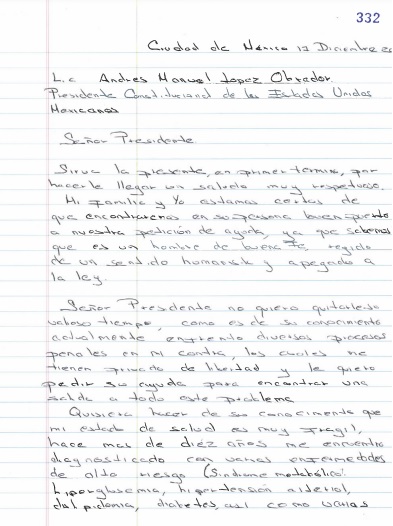 332
Ciudad de México 17 Diciembre 20
Lic Andres Manuel Lopez Obrador.
Presidente Constitucional de los Estados Unidos
Mexicanos
Señor Presidente
Sirva la presente, en primer termino, por
hacerle llegar un saludo muy respetuoso.
Mi familia y Yo estamos certos de
que encontraremos en su persona buen puerto
a nuestra petición de ayuda, ya que sabemos
que es un hombre de buena fe, regido
de un sentido humanista y apegado a
la ley.
Señor Presidente no quiero quitarle su
valioso tiempo, como es de su conocimiento
actualmente enfrento diversos procesos
penales en mi contra, los cuales me
tienen privado de libertad y le quiero
pedir su ayuda para encontrar una
salida a todo este problema
Quisiera hacer de su conocimiento que
mi estado de salud es muy fragil,
hace mas de diez años me encuentro
diagnosticado con varias enfermedades
de alto riesgo (Sindrome metabólico:
hiperglusemia, hipertensión arterial,
dislipidemia, diabetes, así como varias